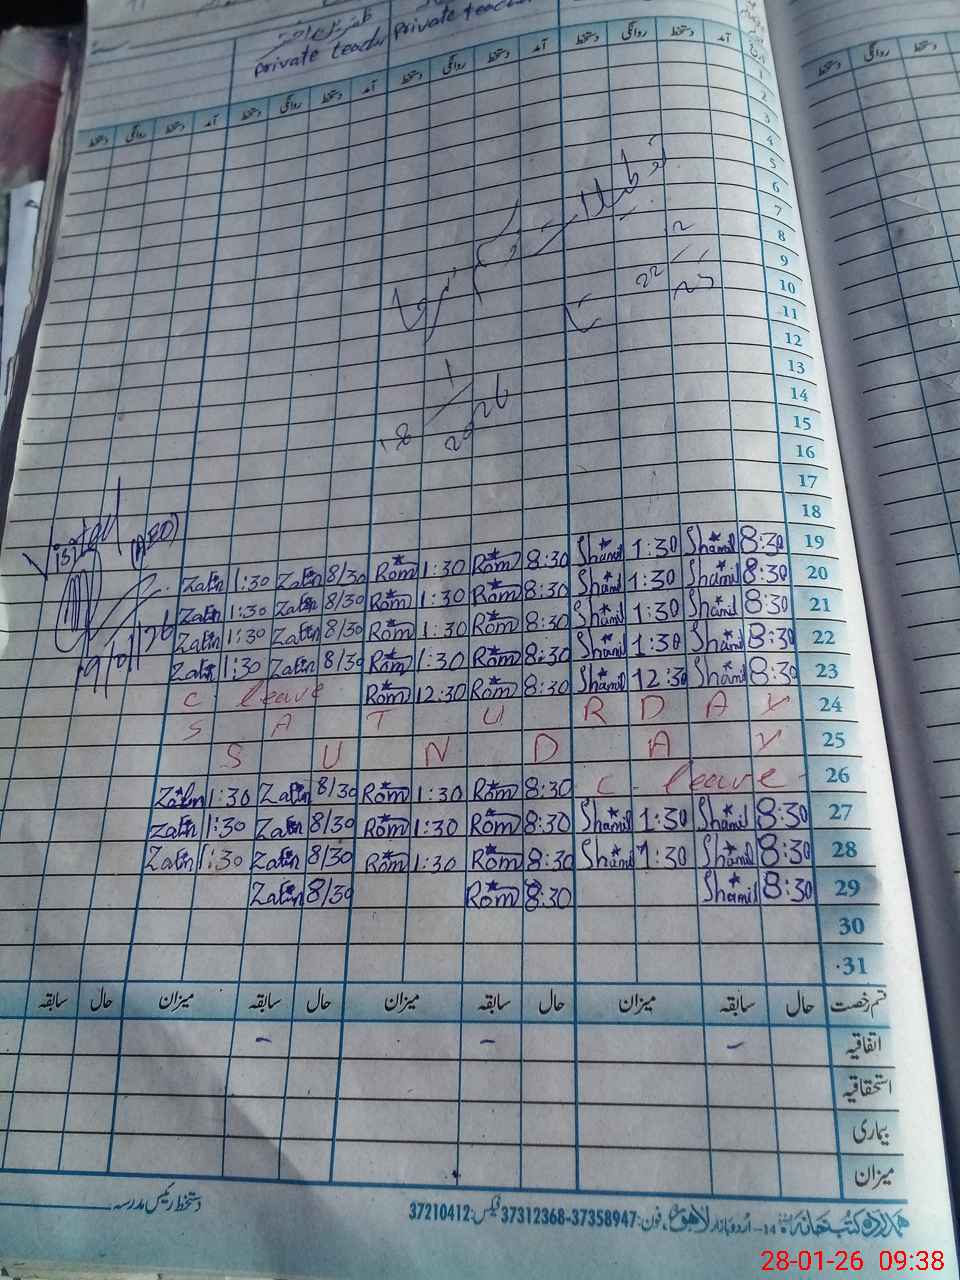 Private teacher Private teache
دستخط روانگی دستخط آمد دستخط روانگی دستخط آمد دستخط روانگی دستخط آمد دستخط روانگی دستخط آمد
دستخط روانگی دستخط
1
2
3
4
5
6
7
8
9
10
11
12
13
14
15
16
17
18
18/1/2026
Zafin 1:30 Zafin 8/30 Rom 1:30 Rom 8:30 Shamil 1:30 Shamil 8:30 19
Zafin 1:30 Zafin 8/30 Rom 1:30 Rom 8:30 Shamil 1:30 Shamil 8:30 20
Zafin 1:30 Zafin 8/30 Rom 1:30 Rom 8:30 Shamil 1:30 Shamil 8:30 21
Zafin 1:30 Zafin 8/30 Rom 1:30 Rom 8:30 Shamil 1:30 Shamil 8:30 22
C leave Rom 12:30 Rom 8:30 Shamil 12:30 Shamil 8:30 23
S A T U R D A Y 24
S U N D A Y 25
Zafin 1:30 Zafin 8/30 Rom 1:30 Rom 8:30 C leave 26
Zafin 1:30 Zafin 8/30 Rom 1:30 Rom 8:30 Shamil 1:30 Shamil 8:30 27
Zafin 1:30 Zafin 8/30 Rom 1:30 Rom 8:30 Shamil 1:30 Shamil 8:30 28
Zafin 8/30 Rom 8:30 Shamil 8:30 29
30
31
Visited
قسم رخصت حال سابقہ میزان حال سابقہ میزان حال سابقہ میزان حال سابقہ
اتفاقیہ
استحقاقیہ
بیماری
میزان
ہمدرد کتب خانہ 14- اردو بازار لاہور فون: 37358947-37312368 فیکس: 37210412
دستخط رئیس مدرسہ
28-01-26 09:38